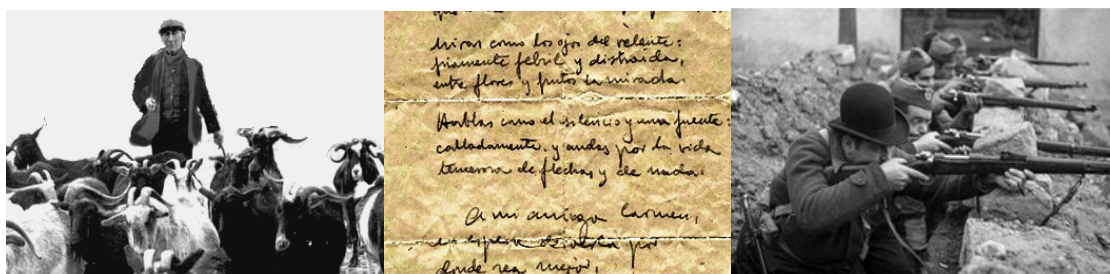 miras como los ojos del relente:
fríamente febril y distraída,
entre flores y frutos la mirada.
Hablas como el silencio y una fuente:
calladamente, y andas por la vida
temerosa de flechas y de nada.
A mi amiga Carmen,
por
donde sea mejor,